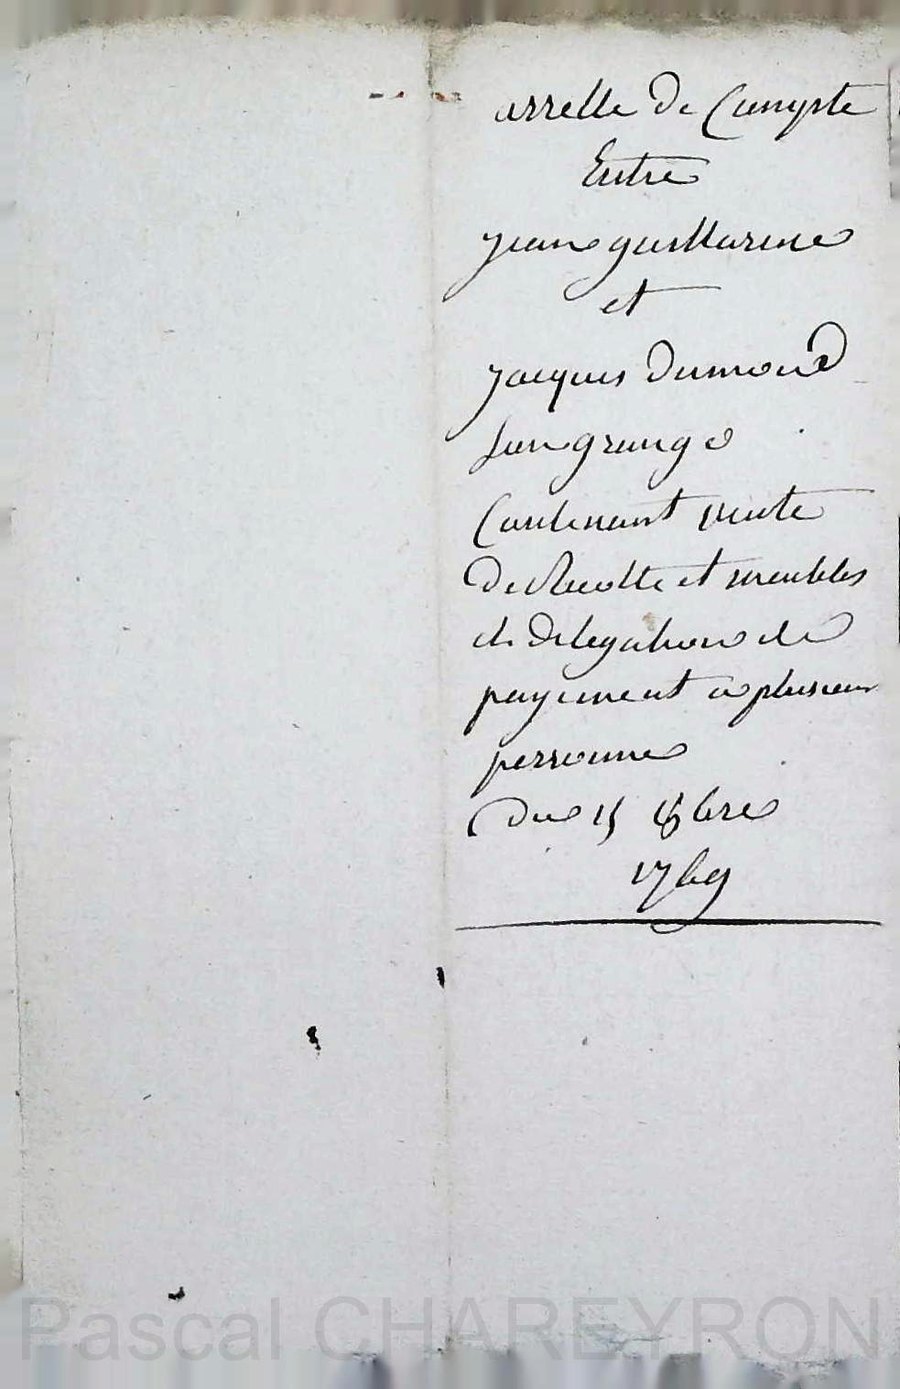 arrette de Compte
Entre
jean guillarme
et
jacques dumond
son grange
Contenant vente
de Recolte et meubles
et delegation de
payement a plusieur
personne
du 15 8bre
1769
Pascal CHAREYRON